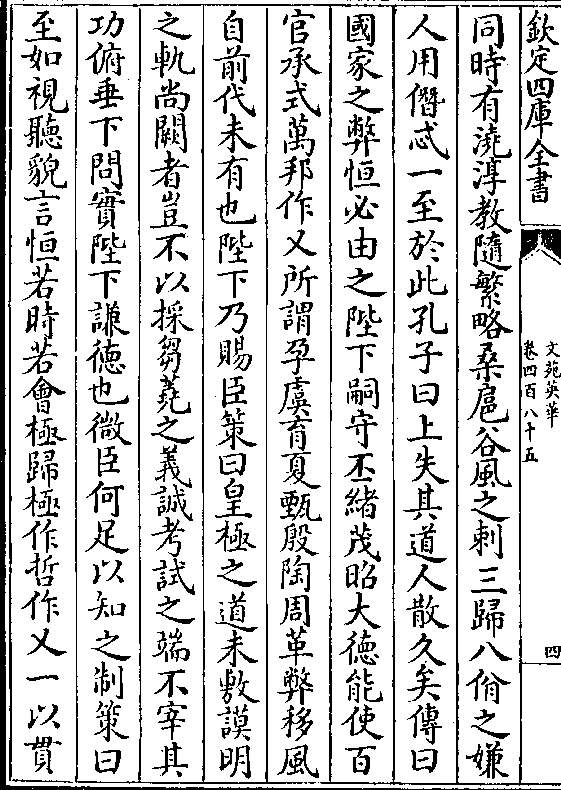 欽定四庫全書
文苑英華
卷四百八十五
四
同時有澆淳教隨繁略桑扈谷風之刺三歸八佾之嫌
人用僭忒一至於此孔子曰上失其道人散久矣傳曰
國家之弊恒必由之陛下嗣守丕緒茂昭大德能使百
官承式萬邦作乂所謂孕虞育夏甄殷陶周革弊移風
自前代未有也陛下乃賜臣策曰皇極之道未敷謨明
之軌尚闕者豈不以採芻蕘之義誠考試之端不宰其
功俯垂下問實陛下謙德也微臣何足以知之制策曰
至如視聽貌言恒若時若會極歸極作哲作乂一以貫